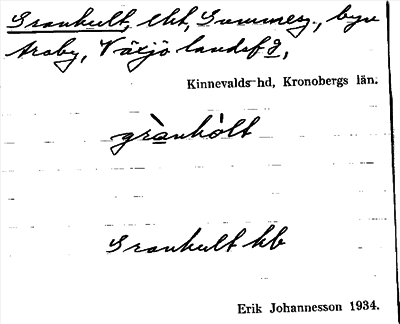 Granhult, lht, Gummesg., byn
Araby, Växjö landsf 2,
Kinnevalds hd, Kronobergs län.
grànhòlt
Granhult kb
Erik Johannesson 1934.